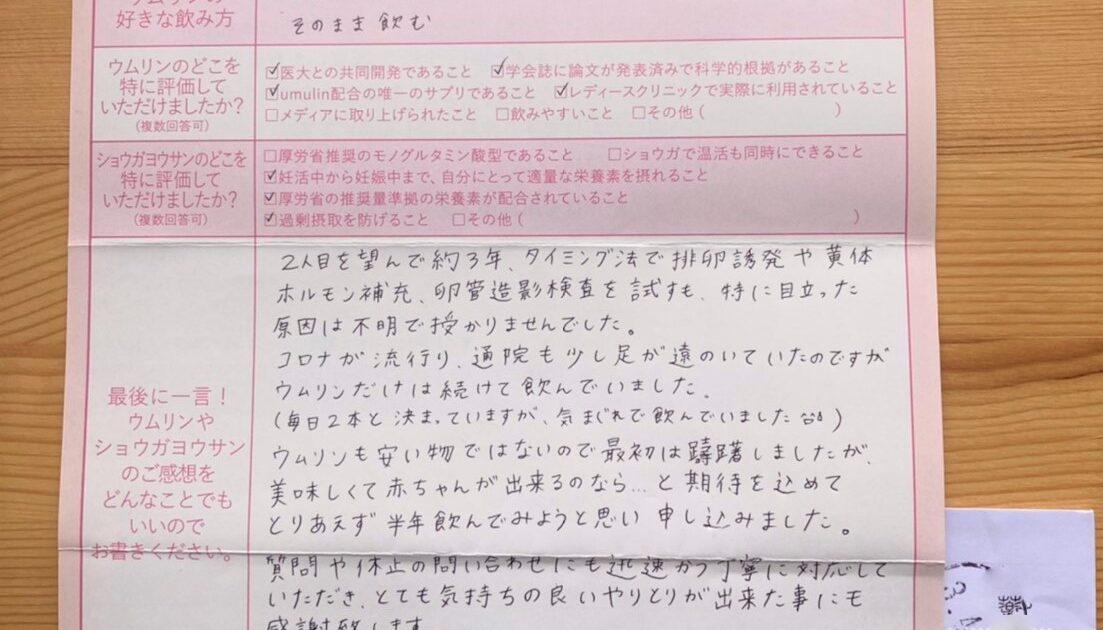 ウムリンの
好きな飲み方
そのまま飲む
ウムリンのどこを
特に評価して
いただけましたか?
(複数回答可)
☑医大との共同開発であること ☑学会誌に論文が発表済みで科学的根拠があること
☑umulin配合の唯一のサプリであること ☑レディースクリニックで実際に利用されていること
☐メディアに取り上げられたこと ☐飲みやすいこと ☐その他 ( )
ショウガヨウサンのどこを
特に評価して
いただけましたか?
(複数回答可)
☐厚労省推奨のモノグルタミン酸型であること ☐ショウガで温活も同時にできること
☑妊活中から妊娠中まで、自分にとって適量な栄養素を摂れること
☑厚労省の推奨量準拠の栄養素が配合されていること
☑過剰摂取を防げること ☐その他 ( )
最後に一言!
ウムリンや
ショウガヨウサン
のご感想を
どんなことでも
いいので
お書きください。
2人目を望んで約3年、タイミング法で排卵誘発や黄体
ホルモン補充、卵管造影検査を試すも、特に目立った
原因は不明で授かりませんでした。
コロナが流行り、通院も少し足が遠のいていたのですが
ウムリンだけは続けて飲んでいました。
(毎日2本と決まっていますが、気まぐれで飲んでいました)
ウムリンも安い物ではないので最初は躊躇しましたが、
美味しくて赤ちゃんが出来るのなら…と期待を込めて
とりあえず半年飲んでみようと思い申し込みました。
質問や休止の問い合わせにも迅速かつ丁寧に対応して
いただき、とても気持ちの良いやりとりが出来た事にも
感謝致します